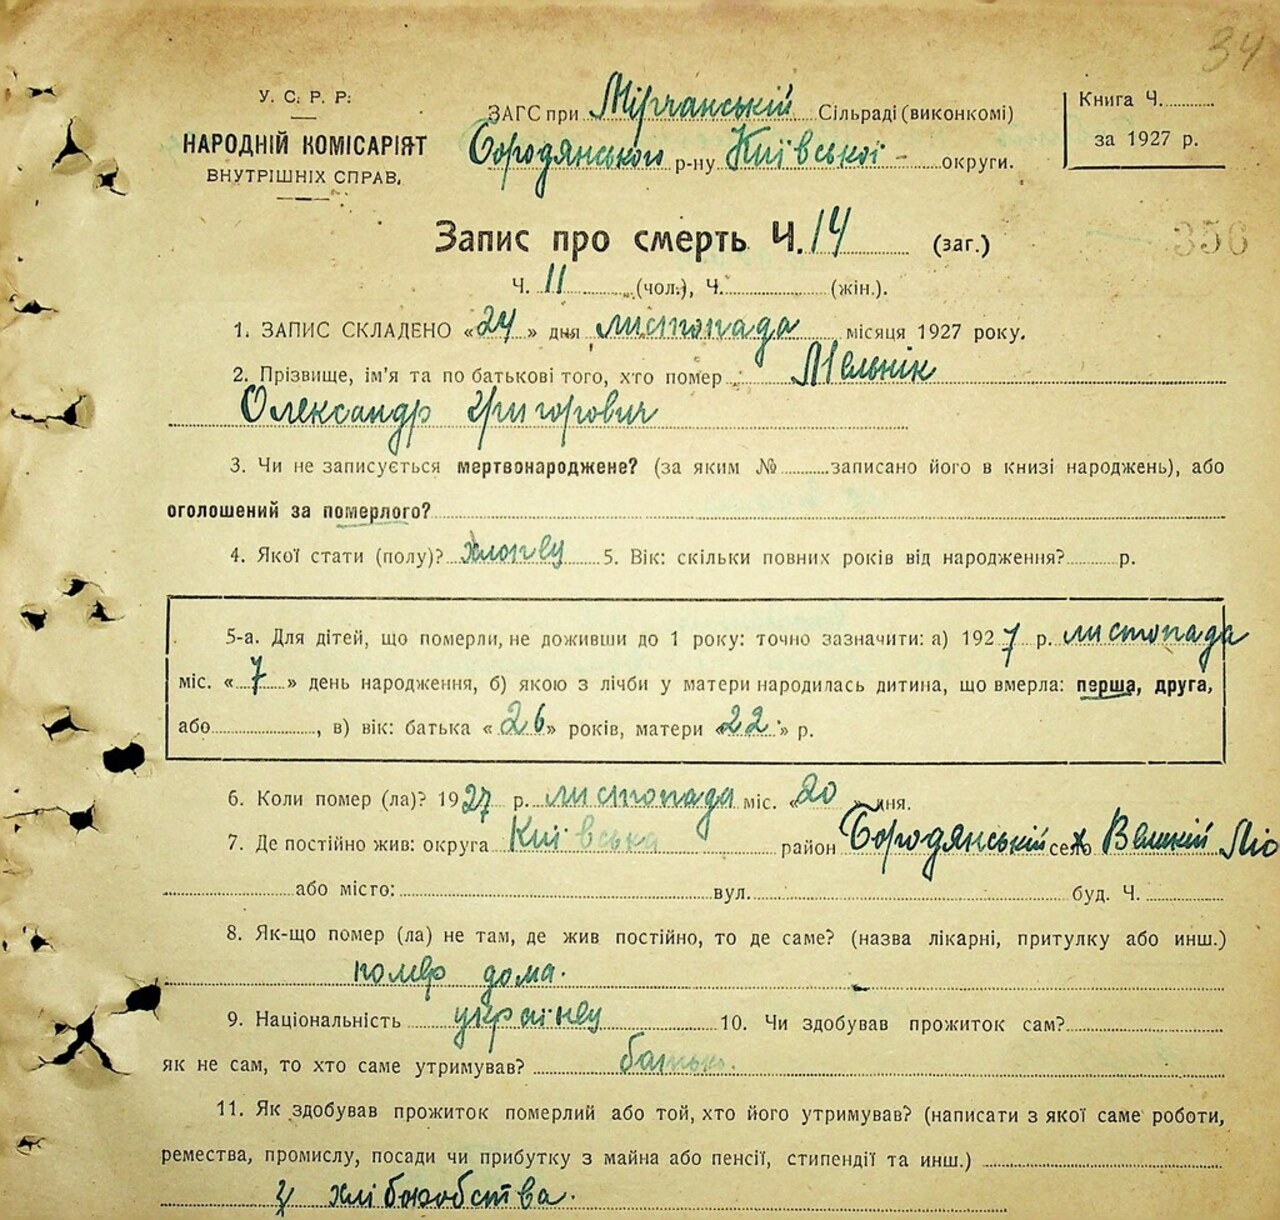 34
У. С. Р. Р.
НАРОДНІЙ КОМІСАРІЯТ
ВНУТРІШНІХ СПРАВ.
ЗАГС при Мірчанській Сільраді (виконкомі)
Бородянського р-ну Київської округи.
Книга Ч.
за 1927 р.
356
Запис про смерть Ч. 14 (заг.)
Ч. 11 (чол.), Ч. (жін.).
1. ЗАПИС СКЛАДЕНО «24» дня листопада місяця 1927 року.
2. Прізвище, ім'я та по батькові того, хто помер Мельнік
Олександр Григорович
3. Чи не записується мертвонароджене? (за яким № записано його в книзі народжень), або
оголошений за померлого?
4. Якої стати (полу)? хлопец 5. Вік: скільки повних років від народження? р.
5-а. Для дітей, що померли, не доживши до 1 року: точно зазначити: а) 1927 р. листопада
міс. «7» день народження, б) якою з лічби у матери народилась дитина, що вмерла: перша, друга,
або , в) вік: батька «26» років, матери «22» р.
6. Коли помер (ла)? 1927 р. листопада міс. «20» дня.
7. Де постійно жив: округа Київська район Бородянській село Великій Ліс
або місто: вул. буд. Ч.
8. Як-що помер (ла) не там, де жив постійно, то де саме? (назва лікарні, притулку або инш.)
помер дома.
9. Національність українец 10. Чи здобував прожиток сам?
як не сам, то хто саме утримував? батько.
11. Як здобував прожиток померлий або той, хто його утримував? (написати з якої саме роботи,
ремества, промислу, посади чи прибутку з майна або пенсії, стипендії та инш.)
З хліборобства.